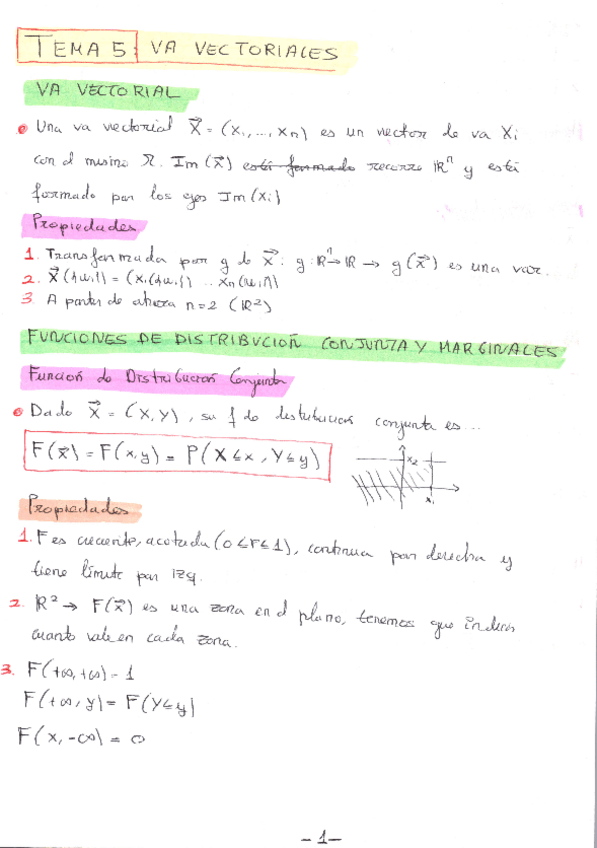 TEMA 5: VA VECTORIALES
VA VECTORIAL
Una va vectorial X⃗ = (X₁,..., Xₙ) es un vector de va Xᵢ
con el mismo Ω. Im(X⃗) está formado recorre ℝⁿ y está
formado por los ejes Im(Xᵢ)
Propiedades
1. Transformada por g de X⃗: g: ℝⁿ→ℝ → g(X⃗) es una var.
2. X⃗({ωᵢ}) = (X₁({ωᵢ}) ... Xₙ({ωᵢ}))
3. A partir de ahora n=2 (ℝ²)
FUNCIONES DE DISTRIBUCIÓN CONJUNTA Y MARGINALES
Función de Distribución Conjunta
Dado X⃗ = (X,Y), su f de distribución conjunta es...
F(x⃗) = F(x,y) = P(X≤x, Y≤y)
x₂
x₁
Propiedades
1. F es creciente, acotada (0≤F≤1), continua por derecha y
tiene límite por izq.
2. ℝ² → F(x⃗) es una zona en el plano, tenemos que indicar
cuanto vale en cada zona.
3. F(+∞,+∞)=1
F(+∞,y)=F(Y≤y)
F(x,-∞)=0
-1-